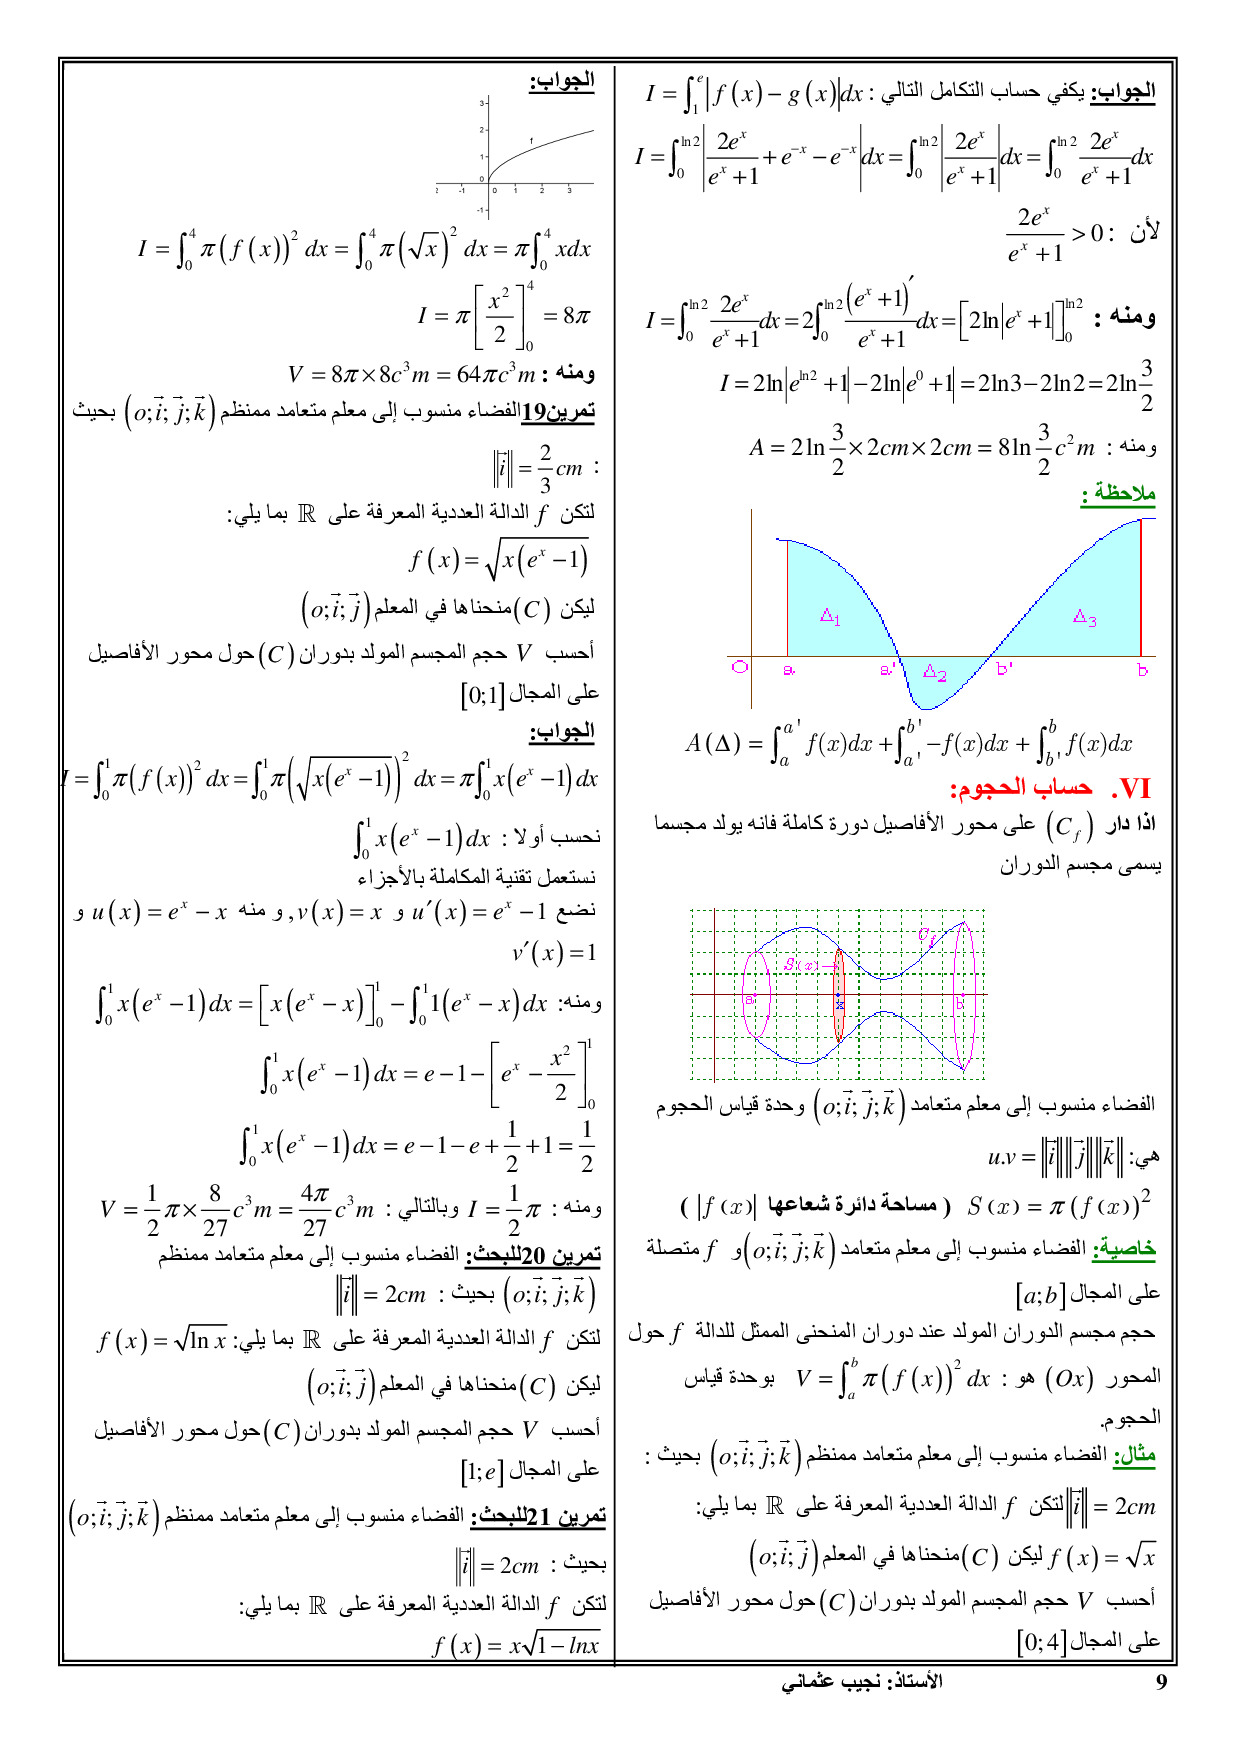 الجواب: يكفي حساب التكامل التالي : $I = \int_{1}^{e} |f(x) - g(x)| dx$
$I = \int_{0}^{\ln 2} \left| \frac{2e^x}{e^x+1} + e^{-x} - e^{-x} \right| dx = \int_{0}^{\ln 2} \left| \frac{2e^x}{e^x+1} \right| dx = \int_{0}^{\ln 2} \frac{2e^x}{e^x+1} dx$
لأن : $\frac{2e^x}{e^x+1} > 0$
ومنه : $I = \int_{0}^{\ln 2} \frac{2e^x}{e^x+1} dx = 2\int_{0}^{\ln 2} \frac{(e^x+1)'}{e^x+1} dx = \left[ 2\ln|e^x+1| \right]_{0}^{\ln 2}$
$I = 2\ln|e^{\ln 2}+1| - 2\ln|e^0+1| = 2\ln 3 - 2\ln 2 = 2\ln\frac{3}{2}$
ومنه : $A = 2\ln\frac{3}{2} \times 2cm \times 2cm = 8\ln\frac{3}{2} c^2m$
ملاحظة :
Δ1 Δ3
O a a' Δ2 b' b
$A(\Delta) = \int_{a}^{a'} f(x)dx + \int_{a'}^{b'} -f(x)dx + \int_{b'}^{b} f(x)dx$
VI. حساب الحجوم:
اذا دار $(C_f)$ على محور الأفاصيل دورة كاملة فانه يولد مجسما
يسمى مجسم الدوران
$C_f$
S(x)→
a x b
الفضاء منسوب إلى معلم متعامد $(o;\vec{i};\vec{j};\vec{k})$ وحدة قياس الحجوم
هي: $u.v = \|\vec{i}\|\|\vec{j}\|\|\vec{k}\|$
$S(x) = \pi(f(x))^2$ ( مساحة دائرة شعاعها $|f(x)|$ )
خاصية: الفضاء منسوب إلى معلم متعامد $(o;\vec{i};\vec{j};\vec{k})$ و $f$ متصلة
على المجال $[a;b]$
حجم مجسم الدوران المولد عند دوران المنحنى الممثل للدالة $f$ حول
المحور $(Ox)$ هو : $V = \int_{a}^{b} \pi(f(x))^2 dx$ بوحدة قياس
الحجوم.
مثال: الفضاء منسوب إلى معلم متعامد ممنظم $(o;\vec{i};\vec{j};\vec{k})$ بحيث :
$\|\vec{i}\| = 2cm$ لتكن $f$ الدالة العددية المعرفة على $\mathbb{R}$ بما يلي:
$f(x) = \sqrt{x}$ ليكن $(C)$ منحناها في المعلم $(o;\vec{i};\vec{j})$
أحسب $V$ حجم المجسم المولد بدوران $(C)$ حول محور الأفاصيل
على المجال $[0;4]$
الجواب:
3
2
f
1
0
2 -1 0 1 2 3
-1
$I = \int_{0}^{4} \pi(f(x))^2 dx = \int_{0}^{4} \pi(\sqrt{x})^2 dx = \pi\int_{0}^{4} xdx$
$I = \pi\left[ \frac{x^2}{2} \right]_{0}^{4} = 8\pi$
ومنه : $V = 8\pi \times 8c^3m = 64\pi c^3m$
تمرين19 الفضاء منسوب إلى معلم متعامد ممنظم $(o;\vec{i};\vec{j};\vec{k})$ بحيث
: $\|\vec{i}\| = \frac{2}{3}cm$
لتكن $f$ الدالة العددية المعرفة على $\mathbb{R}$ بما يلي:
$f(x) = \sqrt{x(e^x-1)}$
ليكن $(C)$ منحناها في المعلم $(o;\vec{i};\vec{j})$
أحسب $V$ حجم المجسم المولد بدوران $(C)$ حول محور الأفاصيل
على المجال $[0;1]$
الجواب:
$I = \int_{0}^{1} \pi(f(x))^2 dx = \int_{0}^{1} \pi\left(\sqrt{x(e^x-1)}\right)^2 dx = \pi\int_{0}^{1} x(e^x-1) dx$
نحسب أولا : $\int_{0}^{1} x(e^x-1) dx$
نستعمل تقنية المكاملة بالأجزاء
نضع $u'(x) = e^x - 1$ و $v(x) = x$ , و منه $u(x) = e^x - x$ و
$v'(x) = 1$
ومنه: $\int_{0}^{1} x(e^x-1) dx = \left[ x(e^x-x) \right]_{0}^{1} - \int_{0}^{1} 1(e^x-x) dx$
$\int_{0}^{1} x(e^x-1) dx = e - 1 - \left[ e^x - \frac{x^2}{2} \right]_{0}^{1}$
$\int_{0}^{1} x(e^x-1) dx = e - 1 - e + \frac{1}{2} + 1 = \frac{1}{2}$
ومنه : $I = \frac{1}{2}\pi$ وبالتالي : $V = \frac{1}{2}\pi \times \frac{8}{27}c^3m = \frac{4\pi}{27}c^3m$
تمرين 20للبحث: الفضاء منسوب إلى معلم متعامد ممنظم
$(o;\vec{i};\vec{j};\vec{k})$ بحيث : $\|\vec{i}\| = 2cm$
لتكن $f$ الدالة العددية المعرفة على $\mathbb{R}$ بما يلي: $f(x) = \sqrt{\ln x}$
ليكن $(C)$ منحناها في المعلم $(o;\vec{i};\vec{j})$
أحسب $V$ حجم المجسم المولد بدوران $(C)$ حول محور الأفاصيل
على المجال $[1;e]$
تمرين 21للبحث: الفضاء منسوب إلى معلم متعامد ممنظم $(o;\vec{i};\vec{j};\vec{k})$
بحيث : $\|\vec{i}\| = 2cm$
لتكن $f$ الدالة العددية المعرفة على $\mathbb{R}$ بما يلي:
$f(x) = x\sqrt{1 - lnx}$
الأستاذ: نجيب عثماني 9